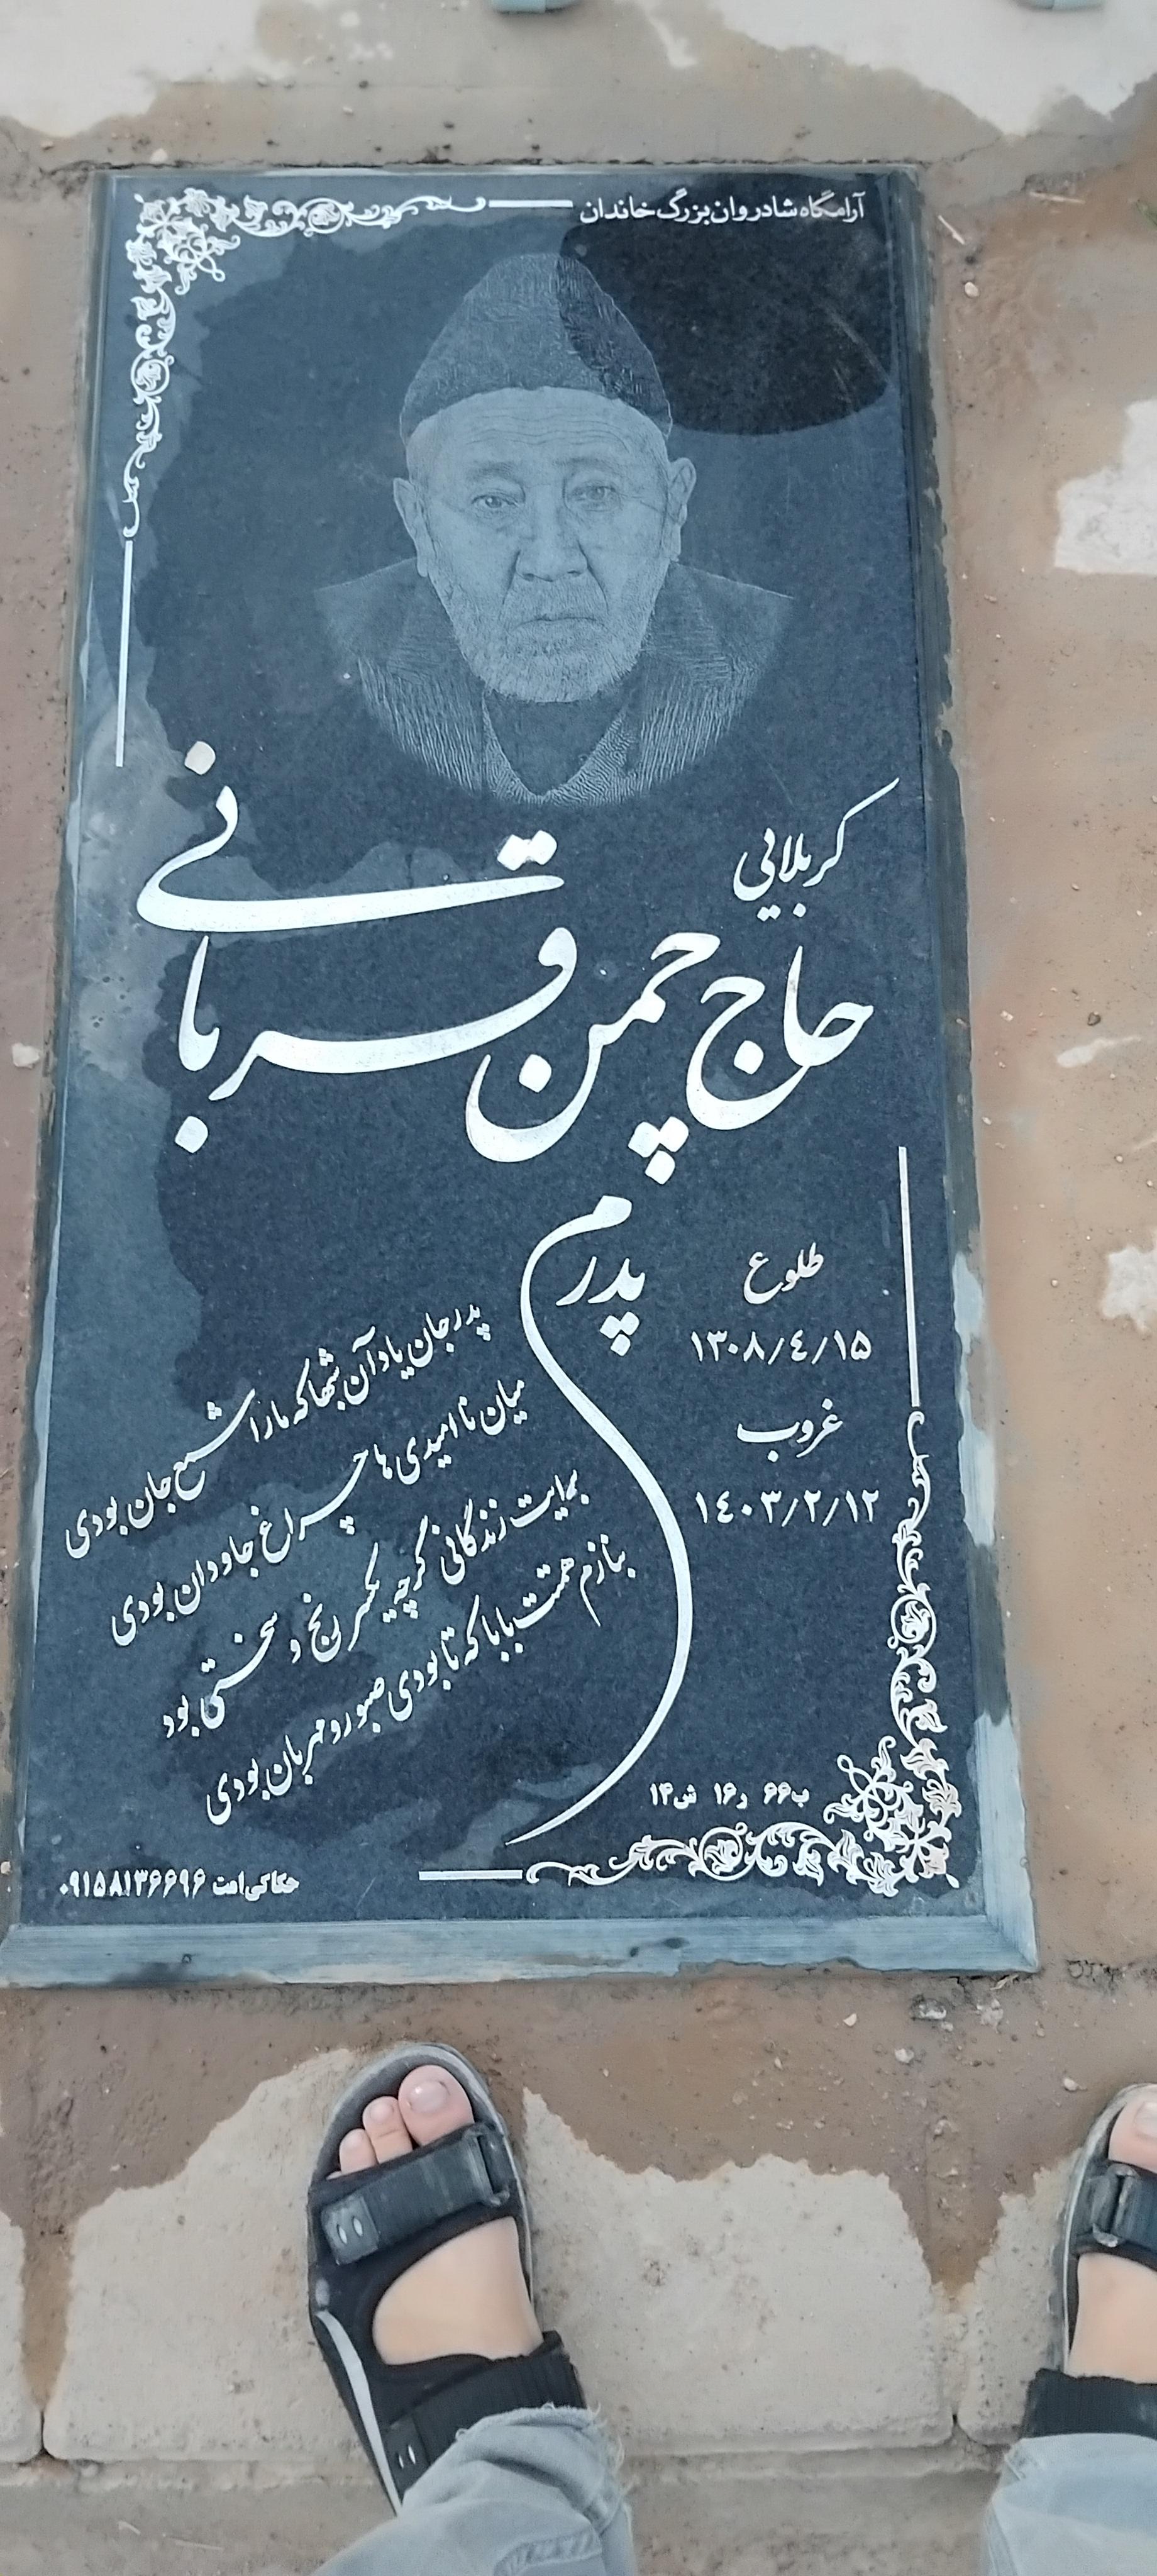 آرامگاه شادروان بزرگ خاندان
کربلایی
حاج چمن قربانی
پدرم
طلوع
۱۳۰۸/٤/۱۵
غروب
۱٤۰۳/۲/۱۲
پدرجان یاد آن شبها که ما را شمع جان بودی
میان نا امیدی ها چراغ جاودان بودی
برایت زندگانی گرچه یکسر رنج و سختی بود
بنازم همتت بابا که تا بودی صبور و مهربان بودی
ب۶۶ ر۱۶ ش۱۴
حکاکی امت ۰۹۱۵۸۱۳۶۶۹۶